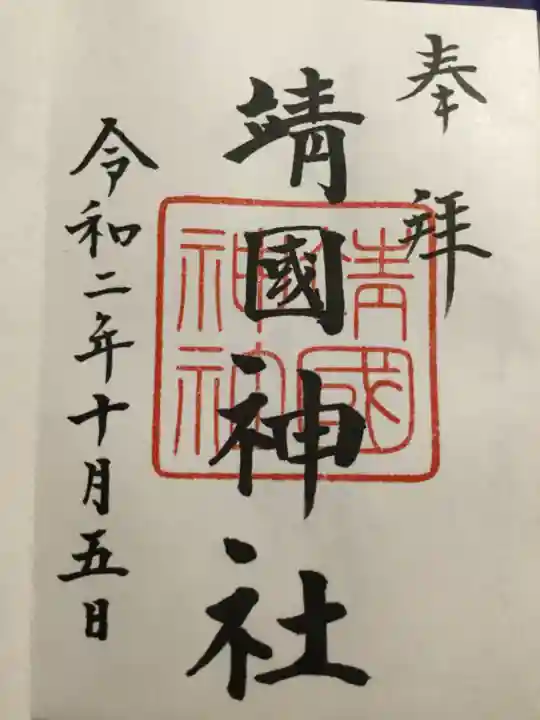 奉拝
靖國神社
靖國
神社
令和二年十月五日